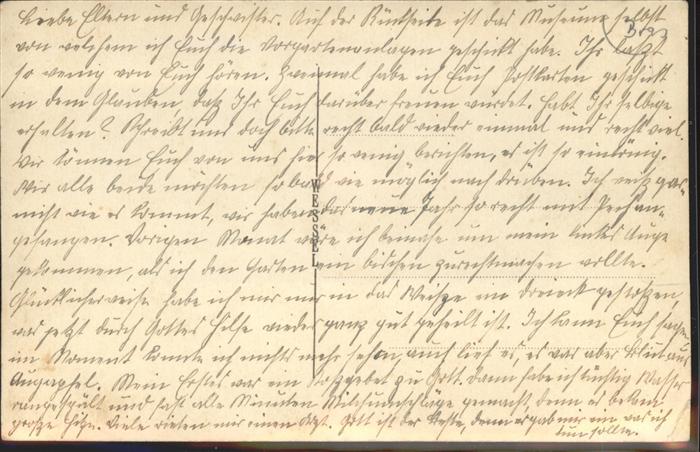 Liebe Eltern und Geschwister. Auf der Rückseite ist das Museum selbst
von welchem ich Euch die Vorgartenanlagen geschickt habe. Ihr laßt
so wenig von Euch hören. Zweimal habe ich Euch Postkarten geschickt
in dem Glauben, daß Ihr Euch darüber freuen würdet. Habt Ihr selbige
erhalten? Schreibt uns doch bitte recht bald wieder einmal und recht viel.
Wir können Euch von uns hier so wenig berichten, es ist so eintönig.
Wir alle beide möchten so bald wie möglich nach drüben. Ich weiß gar
nicht wie es kommt, wir haben das neue Jahr so recht mit Pech an-
gefangen. Vorigen Monat wäre ich beinahe um mein linkes Auge
gekommen, als ich den Garten ein bischen zurechtmachen wollte.
Glücklicherweise habe ich mir nur in das Weiße ein Dreieck gestoßen
was jetzt durch Gottes Hilfe wieder ganz gut geheilt ist. Ich kann Euch sagen
im Moment konnte ich nichts mehr sehen, auch lief es, es war aber Blut aus
Augapfel. Mein Erstes war ein Stoßgebet zu Gott. Dann habe ich tüchtig Wasser
rangespült und fast alle Minuten Milchumschläge gemacht denn es bekam
große Hitze. Viele rieten mir einen Arzt. Gott ist der Beste, denn er gab mir ein was ich
tun sollte.
WESSEL